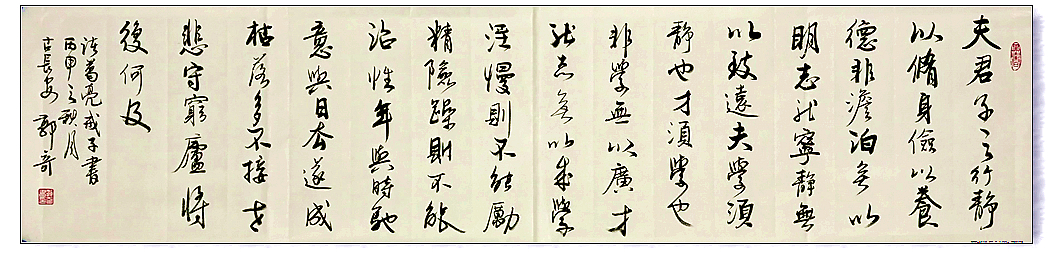 夫君子之行靜
以脩身儉以養
德非澹泊無以
明志非寧靜無
以致遠夫學須
靜也才須學也
非學無以廣才
非志無以成學
淫慢則不能勵
精險躁則不能
治性年與時馳
意與日去遂成
枯落多不接世
悲守窮廬將
復何及
諸葛亮戒子書
丙申之秋月
古長安郭奇